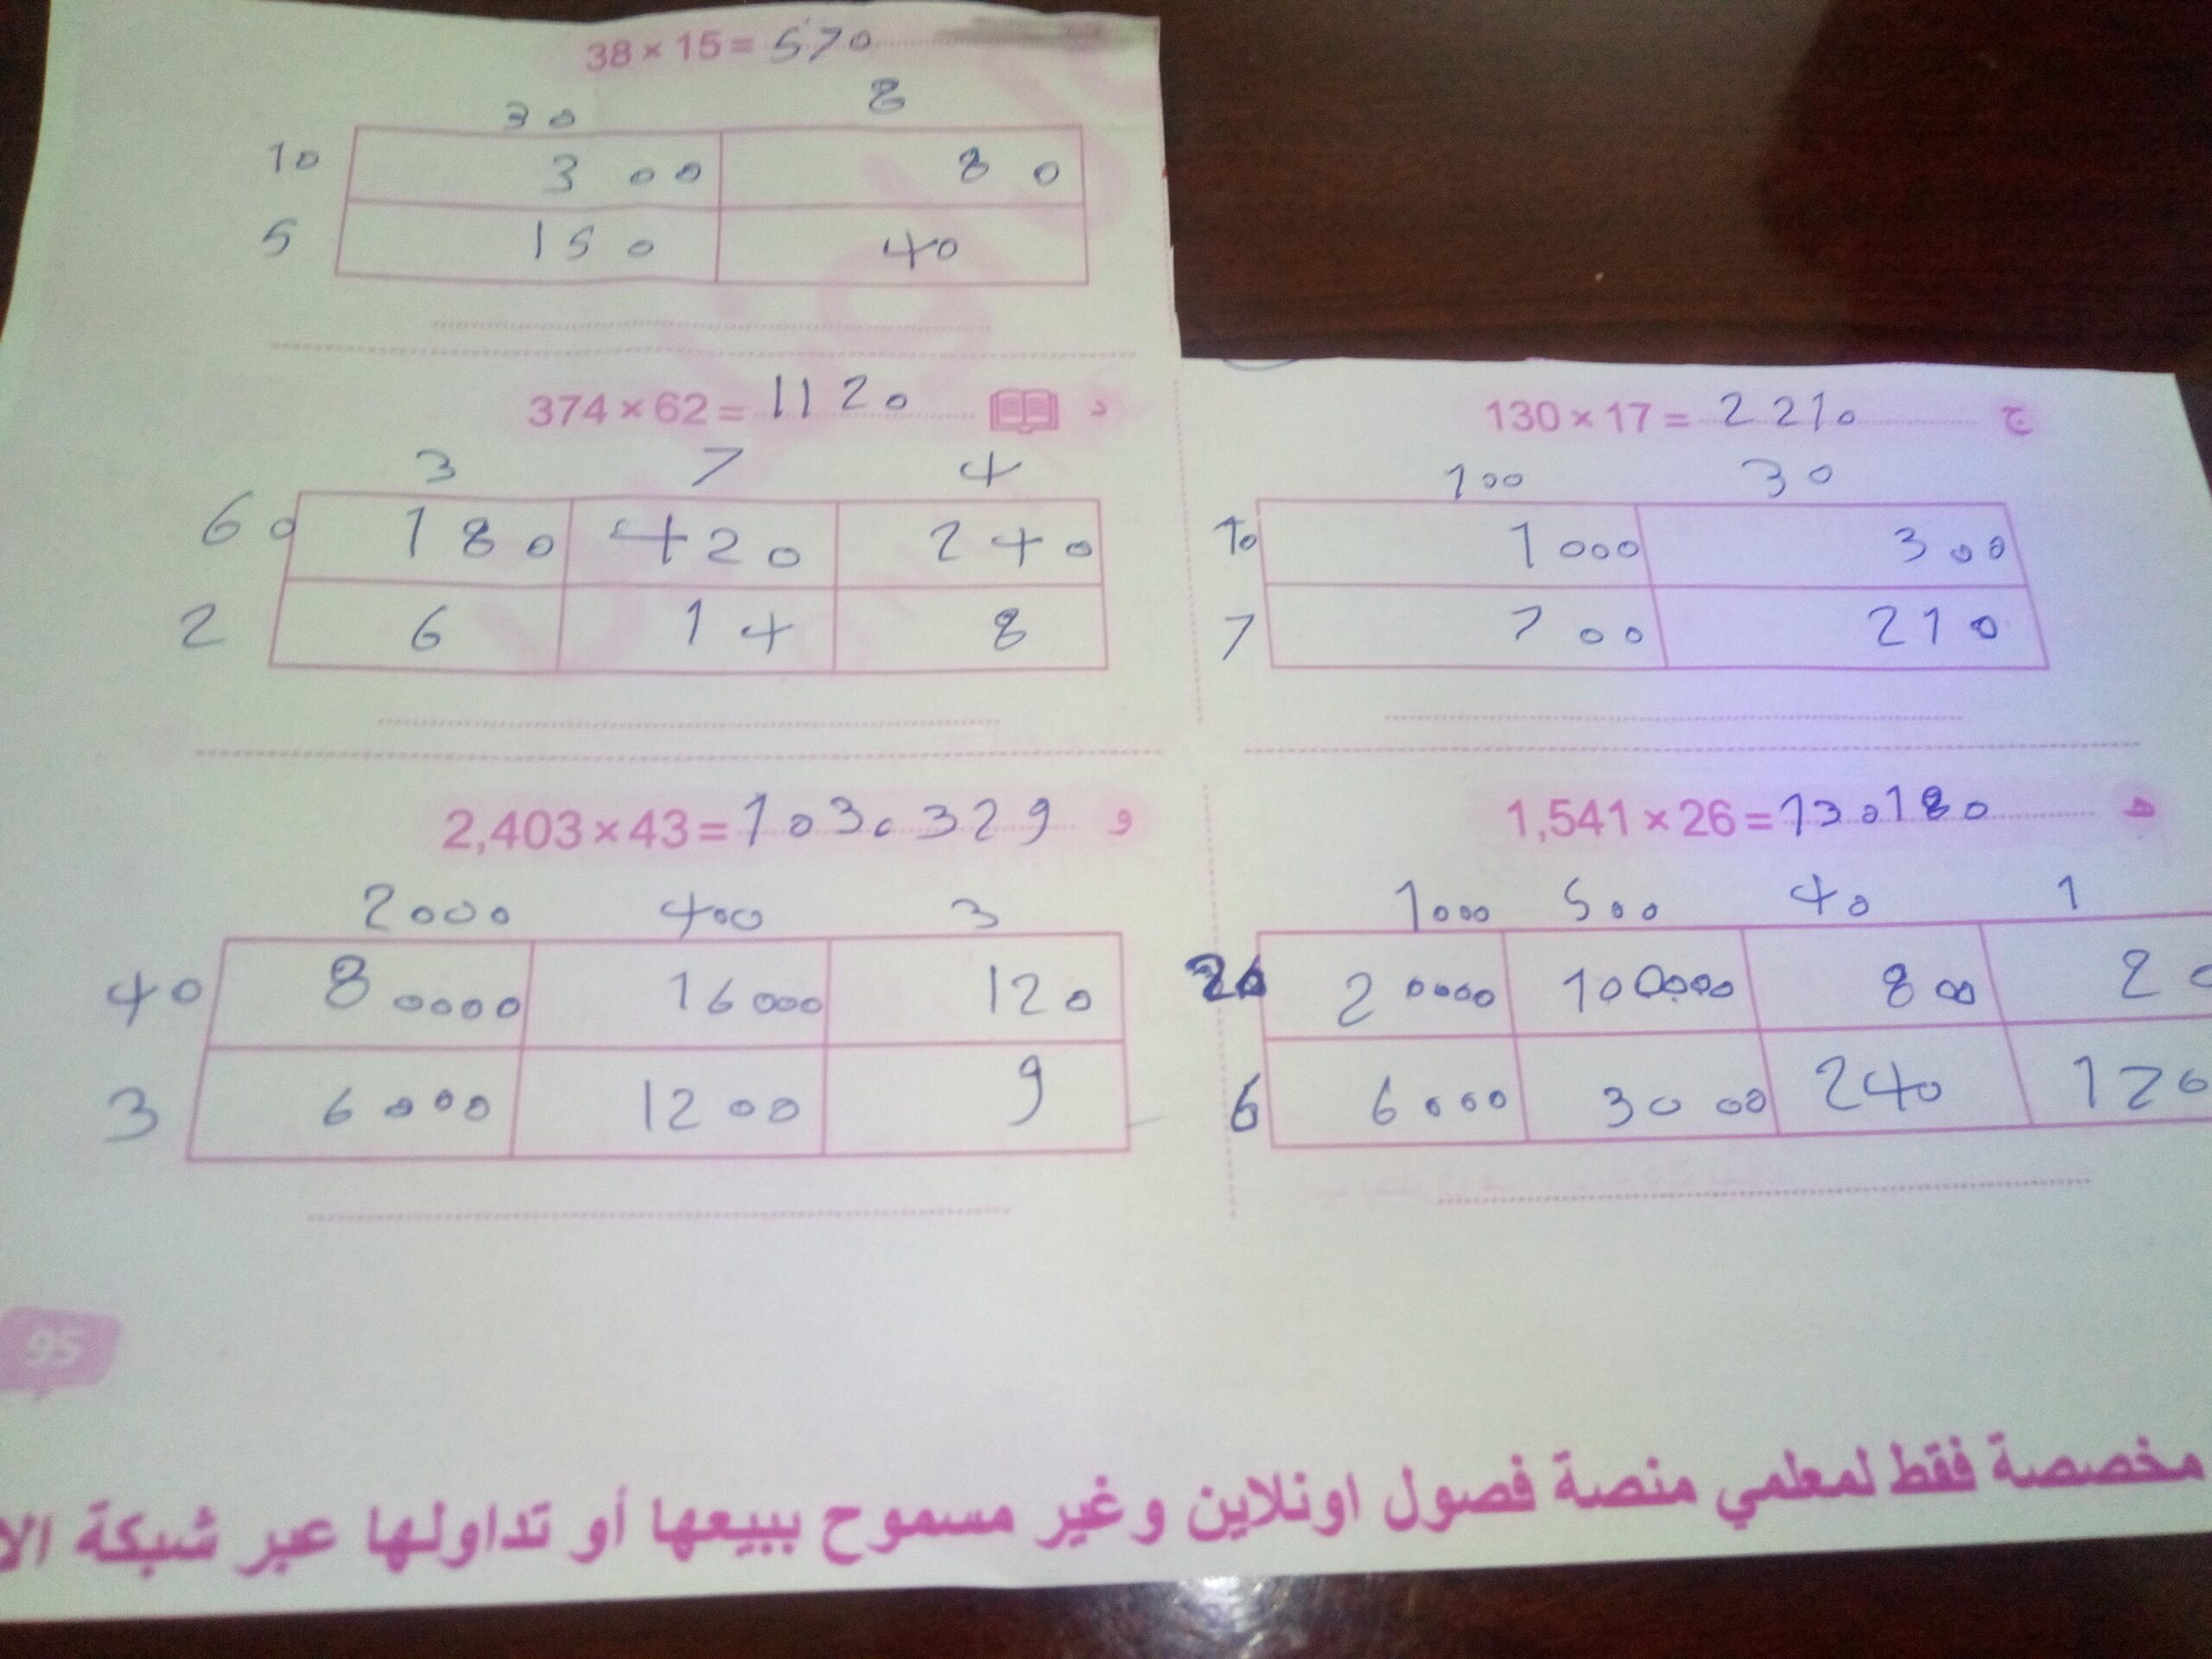 38 × 15 = 570
30 8
10 300 80
5 150 40
ج 130 × 17 = 2210
100 30
10 1000 300
7 700 210
د 374 × 62 = 1120
3 7 4
60 180 420 240
2 6 14 8
هـ 1,541 × 26 = 130180
1000 500 40 1
20000 100000 800 20
6 6000 3000 240 120
و 2,403 × 43 = 1030329
2000 400 3
40 80000 16000 120
3 6000 1200 9
95
مخصصة فقط لمعلمي منصة فصول اونلاين وغير مسموح ببيعها أو تداولها عبر شبكة الا